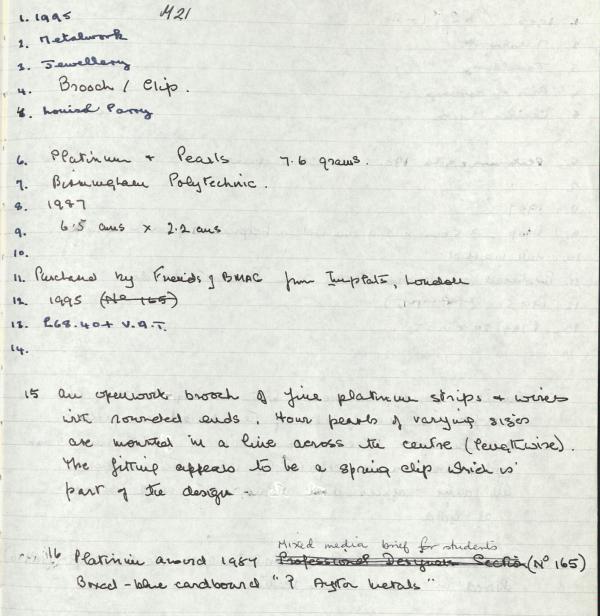 M21
1. 1995
2. Metalwork
3. Jewellery
4. Brooch / Clip.
5. Louise Parry
6. Platinum + Pearls 7.6 grams.
7. Birmingham Polytechnic.
8. 1987
9. 6.5 cms x 2.2 cms
10.
11. Purchased by Friends of BMAG from Implats, London
12. 1995 (No 165)
13. £68.40 + V.A.T.
14.
15 An openwork brooch of fine platinum strips + wires
with rounded ends. Four pearls of varying sizes
are mounted in a line across the centre (lengthwise).
The fitting appears to be a spring clip which is
part of the design.
Mixed media brief for students
16 Platinum award 1987 Professional Designers Section (No 165)
Boxed - blue cardboard "? Ayrton Metals"